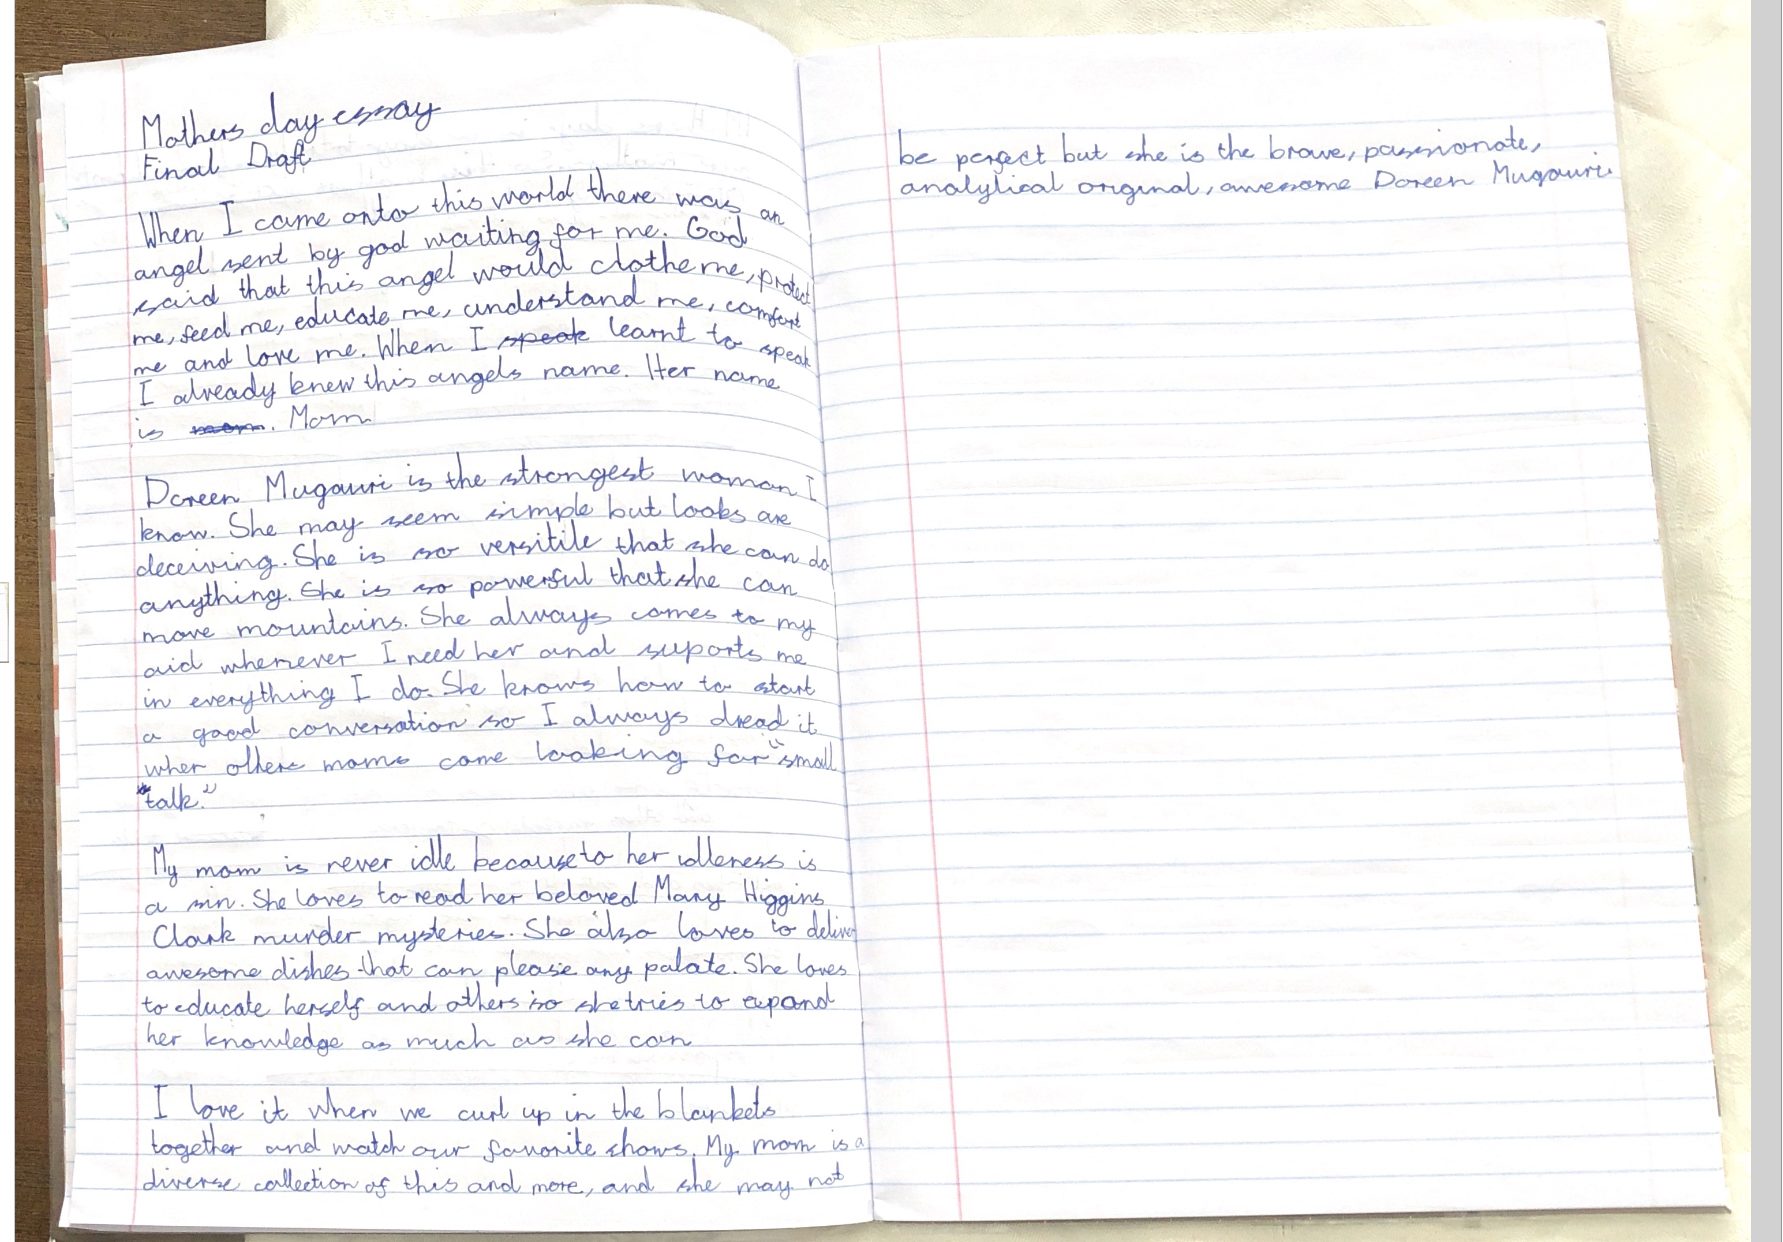 Mothers day essay
Final Draft
When I came onto this world there was an
angel sent by god waiting for me. God
said that this angel would clothe me, protect
me, feed me, educate me, understand me, comfort
me and love me. When I speak learnt to speak
I already knew this angels name. Her name
is mom. Mom
Doreen Mugauri is the strongest woman I
know. She may seem simple but looks are
deceiving. She is so versitile that she can do
anything. She is so powerful that she can
move mountains. She always comes to my
aid whenever I need her and suports me
in everything I do. She knows how to start
a good conversation so I always dread it
when others moms come looking for "small
"talk."
My mom is never idle because to her idleness is
a sin. She loves to read her beloved Mary Higgins
Clark murder mysteries. She also loves to deliver
awesome dishes that can please any palate. She loves
to educate herself and others so she tries to expand
her knowledge as much as she can
I love it when we curl up in the blankets
together and watch our favorite shows. My mom is a
diverse collection of this and more, and she may not
be perfect but she is the brave, passionate,
analytical original, awesome Doreen Mugauri.